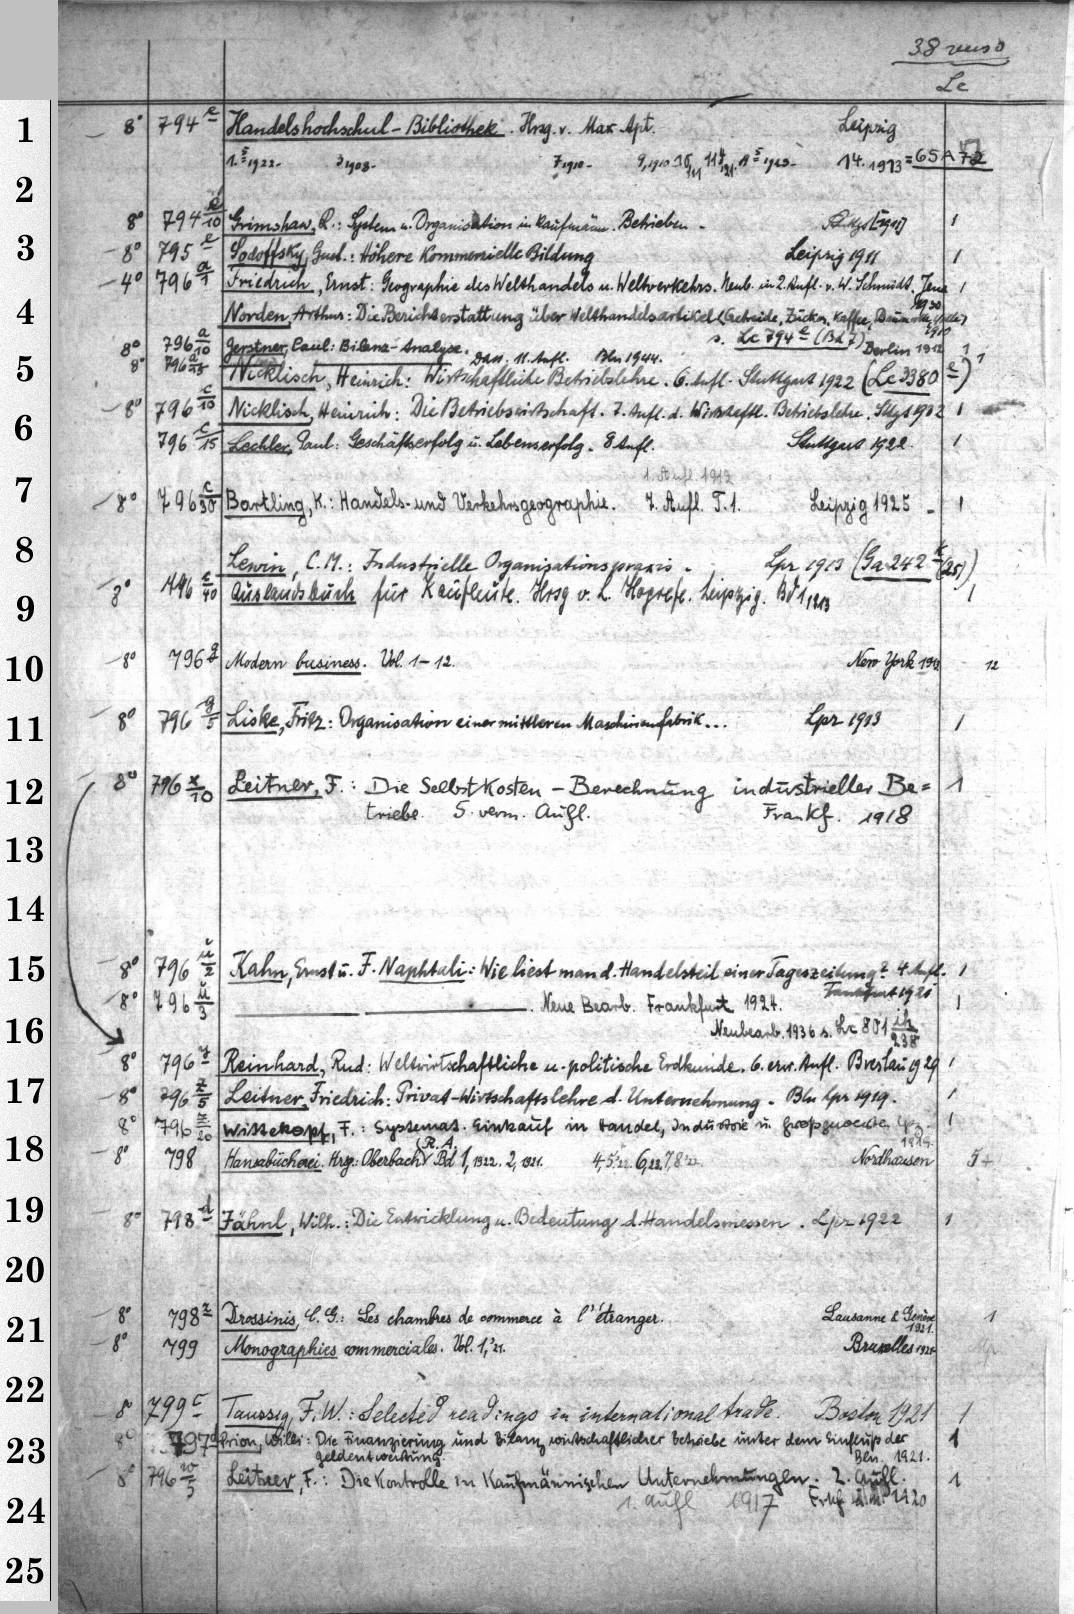 38 verso
Lc
1 8° 794 e Handelshochschul-Bibliothek. Hrsg. v. Max Apt. Leipzig
1. 5 1922. 3 1908. 7 1910. 9, 1910 14. 1913 = 65 A 72
2
8° 794 e/10 Grimshaw, R.: System u. Organisation in kaufmänn. Betrieben.
3 8° 795 e Sodoffsky, Gust.: Höhere Kommerzielle Bildung Leipzig 1911 1
4° 796 a/1 Friedrich, Ernst: Geographie des Welthandels u. Weltverkehrs. Neub. in 2. Aufl. v. W. Schmidt. Jena 1930 1
4 Norden, Arthur: Die Berichterstattung über Welthandelsartikel (Getreide, Zucker, Kaffee, Baumwolle) 1910
s. Lc 794 e (Bd 7)
8° 796 a/10 Gerstner, Paul: Bilanz-Analyse. Berlin 1912 1
Dass. 11. Aufl. Bln 1944. 1
5 8° 796 a/15 Nicklisch, Heinrich: Wirtschaftliche Betriebslehre. 6. Aufl. Stuttgart 1922 (Lc 3380 e)
8° 796 c/10 Nicklisch, Heinrich: Die Betriebswirtschaft. 7. Aufl. d. Wirtschaftl. Betriebslehre. Sttgt 1932 1
6 796 c/15 Lechler, Paul: Geschäftserfolg u. Lebenserfolg. 8 Aufl. Stuttgart 1922. 1
7 1. Aufl. 1913
8° 796 c/30 Bartling, K.: Handels- und Verkehrsgeographie. 7. Aufl. T. 1. Leipzig 1925 1
8
Lewin, C. M.: Industrielle Organisationspraxis. Lpz 1913 (Ga 242 k (25))
9 8° 796 c/40 Auslandsbuch für Kaufleute. Hrsg v. L. Leipzig. Bd 1 1913 1
10 8° 796 g Modern business. Vol. 1-12. New York 12
11 8° 796 g/5 Liske, Fritz: Organisation einer mittleren Maschinenfabrik... Lpz 1913 1
12 8° 796 k/10 Leitner, F.: Die Selbstkosten-Berechnung industrieller Be= 1
triebe. 5. verm. Aufl. Frankf. 1918
13
14
15 8° 796 u/2 Kahn, Ernst u. F. Naphtali: Wie liest man d. Handelsteil einer Tageszeitung? 4 Aufl. 1
Frankfurt 1921
8° 796 u/3 Neue Bearb. Frankfurt 1924. 1
16 Neubearb. 1936 s. Lc 801 ih/238
8° 796 y Reinhard, Rud: Weltwirtschaftliche u. politische Erdkunde. 6. erw. Aufl. Breslau 1929 1
17 8° 796 z/5 Leitner, Friedrich: Privat-Wirtschaftslehre d. Unternehmung. Bln Lpz 1919. 1
8° 796 z/20 Wittekopf, F.: Systemat. Einkauf in Handel, Industrie u. Lpz. 1
18 8° 798 Hansabücherei. Hrsg: Oberbach R. A. Bd 1, 1922. 2, 1921. 4, 5 6, 7, 8 Nordhausen 5+
19 8° 798 d Jähnl, Wilh.: Die Entwicklung u. Bedeutung d. Handelsmessen. Lpz 1922 1
20
21 8° 798 z Drossinis, C. G.: Les chambres de commerce à l'étranger. Lausanne & Genève 1921. 1
8° 799 Monographies commerciales. Vol. 1, '21. Bruxelles 1921
22 8° 799 c Taussig, F. W.: Selected readings in international trade. Boston 1921 1
23 8° 797 d Prion, Willi: Die Finanzierung und Bilanz wirtschaftlicher Betriebe unter dem Einfluß der 1
Geldentwertung. Ben. 1921.
8° 796 w/5 Leitner, F.: Die Kontrolle in Kaufmännischen Unternehmungen. 2. Aufl. 1
24 1. Aufl 1917 Frkf a. M. 1920
25